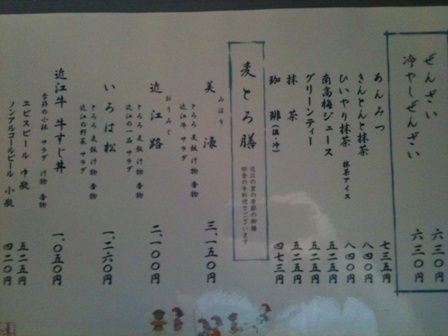 ぜんざい 六三〇円
冷やしぜんざい 六三〇円
あんみつ 七三五円
きんとんと抹茶 八四〇円
ひいやり抹茶 抹茶アイス 八四〇円
南高梅ジュース 五二五円
グリーンティー 五二五円
抹茶 五二五円
珈琲(温・冷) 四七三円
麦とろ膳
美濠 三、一五〇円
とろろ 麦飯 汁物 香物
近江牛 サラダ
近江路 二、一〇〇円
とろろ 麦飯 汁物 香物
近江の一品 サラダ
いろは松 一、二六〇円
とろろ 麦飯 汁物 香物
近江の野菜 サラダ
近江牛 牛すじ丼 一、〇五〇円
季節の小鉢 サラダ 汁物 香物
エビスビール 中瓶 五二五円
ノンアルコールビール 小瓶 四二〇円